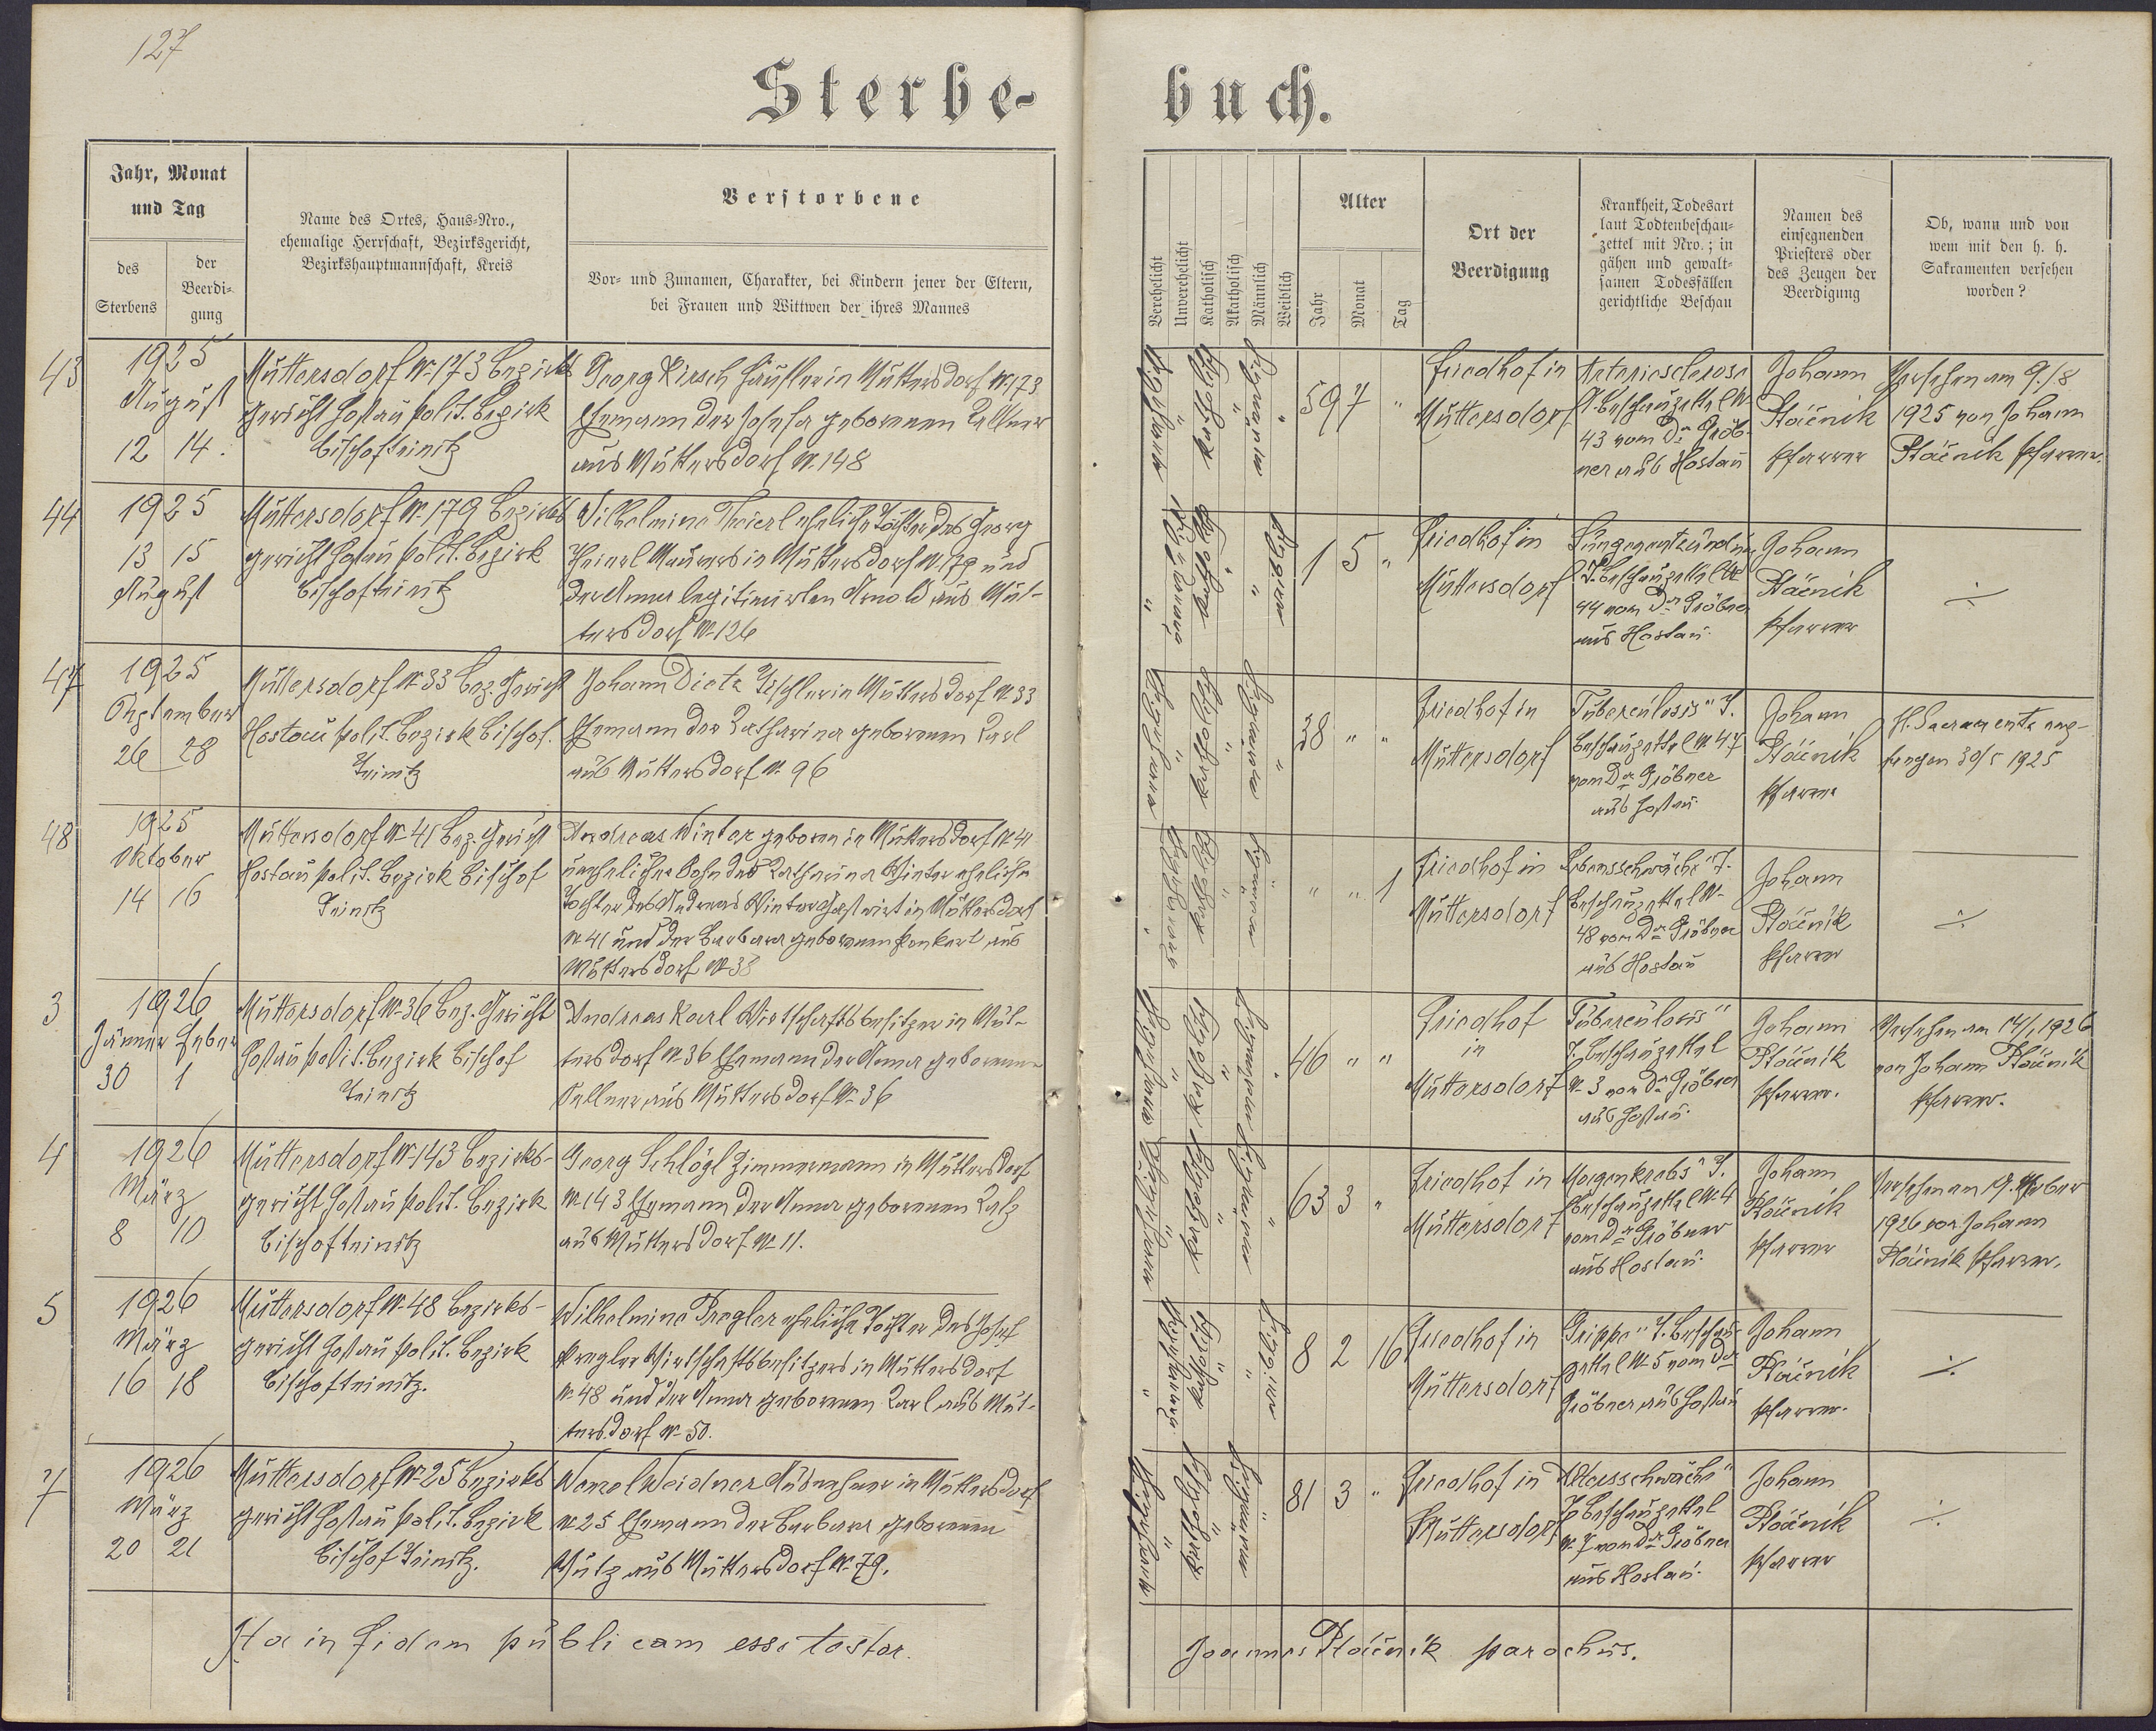 127
Sterbe-
buch.
Jahr, Monat
und Tag
des
Sterbens
der
Beerdi-
gung
Name des Ortes, Haus-Nro.,
ehemalige Herrschaft, Bezirksgericht,
Bezirkshauptmannschaft, Kreis
Verstorbene
Vor- und Zunamen, Charakter, bei Kindern jener der Eltern,
bei Frauen und Wittwen der ihres Mannes
Verehelicht
Unverehelicht
Katholisch
Akatholisch
Männlich
Weiblich
Alter
Jahr
Monat
Tag
Ort der
Beerdigung
Krankheit, Todesart
laut Todtenbeschau-
zettel mit Nro.; in
gähen und gewalt-
samen Todesfällen
gerichtliche Beschau
Namen des
einsegnenden
Priesters oder
des Zeugen der
Beerdigung
Ob, wann und von
wem mit den h. h.
Sakramenten versehen
worden?
43
1925
August
12 14.
Muttersdorf No 173 Bezirks
gericht Hostau polit. Bezirk
Bischofteinitz
Georg Kirsch Häusler in Muttersdorf No 173
Ehemann der Josefa geborenen
aus Muttersdorf No 148
59 7 "
Friedhof in
Muttersdorf
Arteriosclerose
T. Beschauzettel No
43 vom Dr Gröb-
ner aus Hostau
Johann
Ptáčnik
Pfarrer
Versehen am 9./8
1925 von Johann
Ptáčnik Pfarrer.
44
1925
13 15
August
Muttersdorf No 179 Bezirks
gericht Hostau polit. Bezirk
Bischofteinitz
Wilhelmine Heierl eheliche Tochter des Georg
Heierl Maurers in Muttersdorf No 179 und
der Anna legitimirten Arnold aus Mut-
tersdorf No 126
1 5 "
Friedhof in
Muttersdorf
Lungenentzündung
T. Beschauzettel No
44 vom Dr Gröbner
aus Hostau.
Johann
Ptáčnik
Pfarrer
÷
47
1925
September
26 28
Muttersdorf No 33 Bez. Gericht
Hostau polit. Bezirk Bischof.
Teinitz
Johann Dietz Tischler in Muttersdorf No 33
Ehemann der Katharina geborenen Karl
aus Muttersdorf No 96
38 " "
Friedhof in
Muttersdorf
Tuberculosis" T.
Beschauzettel No 47
vom Dr Gröbner
aus Hostau.
Johann
Ptáčnik
Pfarrer
H. Sacramente emp-
fangen 30/5 1925
48
1925
Oktober
14 16
Muttersdorf No 41 Bez. Gericht
Hostau polit. Bezirk Bischof
Teinitz
Andreas Winter geboren in Muttersdorf No 41
unehelicher Sohn der Katharina Winter eheliche
Tochter des Andreas Winter Gastwirt in Muttersdorf
No 41 und der Barbara geborenen aus
Muttersdorf No 38
" " 1
Friedhof in
Muttersdorf
Lebensschwäche T.
Beschauzettel No
48 von Dr Gröbner
aus Hostau
Johann
Ptáčnik
Pfarrer
÷
3
1926
Jänner Feber
30 1
Muttersdorf No 36 Bez. Gericht
Hostau polit. Bezirk Bischof
Teinitz
Andreas Karl Wirtschaftsbesitzer in Mut-
tersdorf No 36 Ehemann der Anna geborenen
Kellner aus Muttersdorf No 36
46 " "
Friedhof
in
Muttersdorf
Tuberculosis"
T. Beschauzettel
No 3 von Dr Gröbner
aus Hostau.
Johann
Ptáčnik
Pfarrer.
Versehen am 14/1 1926
von Johann Ptáčnik
Pfarrer.
4
1926
März
8 10
Muttersdorf No 143 Bezirks-
gericht Hostau polit. Bezirk
Bischofteinitz
Georg Schlögl Zimmermann in Muttersdorf
No 143 Ehemann der Anna geborenen
aus Muttersdorf No 11.
63 3 "
Friedhof in
Muttersdorf
Magenkrebs" T.
Beschauzettel No 4
vom Dr Gröbner
aus Hostau.
Johann
Ptáčnik
Pfarrer
Versehen am 19. Feber
1926 von Johann
Ptáčnik Pfarrer.
5
1926
März
16 18
Muttersdorf No 48 Bezirks-
gericht Hostau polit. Bezirk
Bischofteinitz.
Wilhelmine Pregler eheliche Tochter des Josef
Pregler Wirtschaftsbesitzers in Muttersdorf
No 48 und der Anna geborenen Karl aus Mut-
tersdorf No 50.
8 2 16
Friedhof in
Muttersdorf
Grippe" T. Beschau-
zettel No 5 vom Dr
Gröbner aus Hostau
Johann
Ptáčnik
Pfarrer.
÷
7
1926
März
20 21
Muttersdorf No 25 Bezirks
gericht Hostau polit. Bezirk
Bischof Teinitz.
Wenzel Weidner Ausnehmer in Muttersdorf
No 25 Ehemann der Barbara geborenen
Mutz aus Muttersdorf No 79.
81 3 "
Friedhof in
Muttersdorf
Altersschwäche"
T. Beschauzettel
No 7 von Dr Gröbner
aus Hostau.
Johann
Ptáčnik
Pfarrer
÷
Ita in fidem publicam esse testor.
Joannes Ptáčnik parochus.